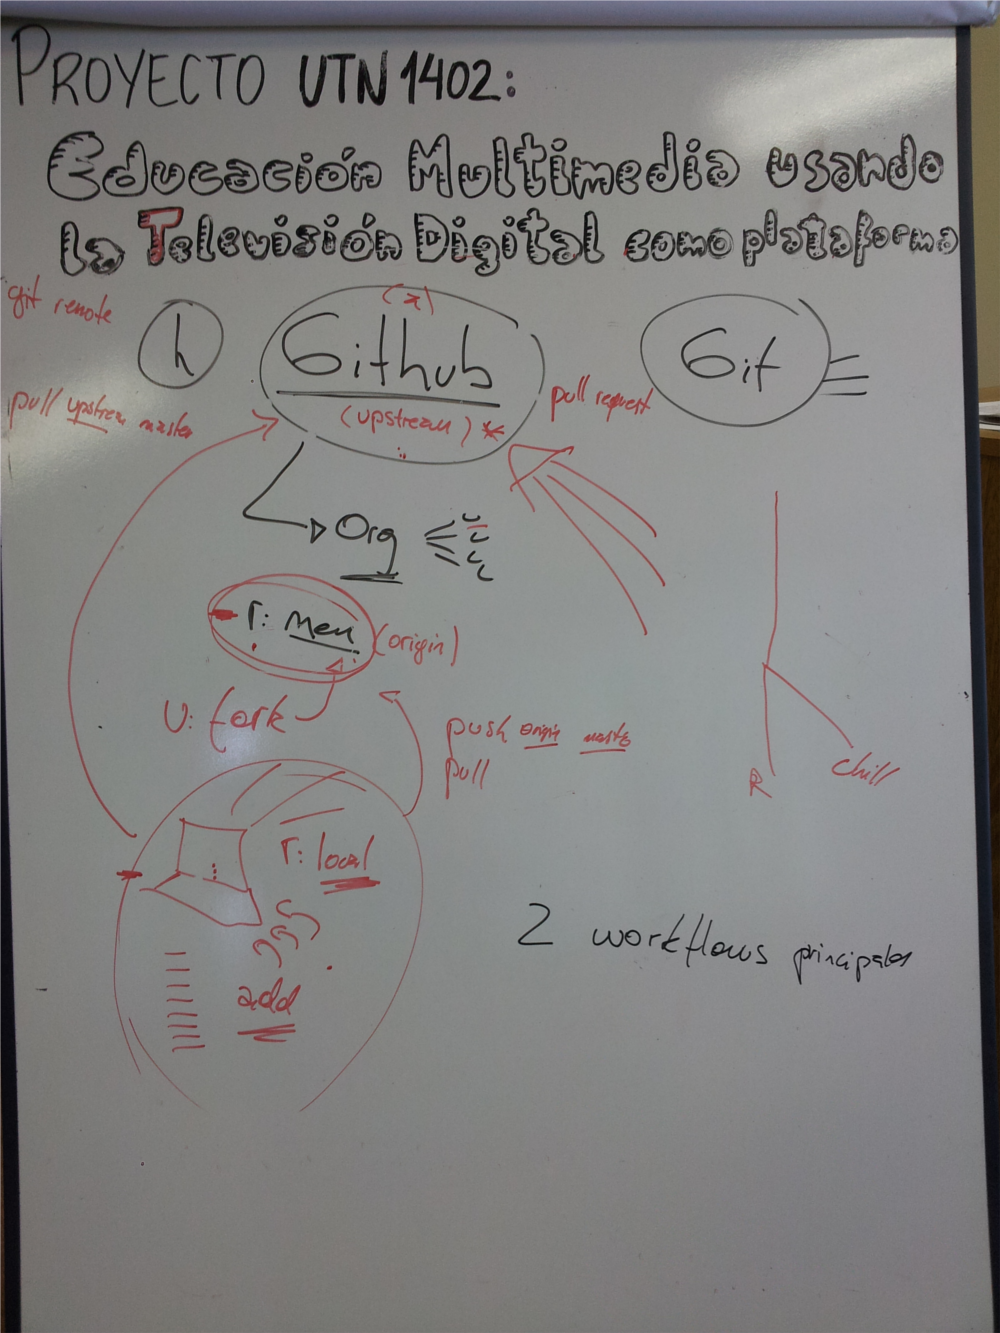 PROYECTO UTN 1402:
Educación Multimedia usando
la Televisión Digital como plataforma
git remote
h
(x)
Github
(upstream) *
Git
pull upstream master
pull request
Org
r: Meu
(origin)
U: fork
push origin master
pull
R
chill
r: local
add
2 workflows principales